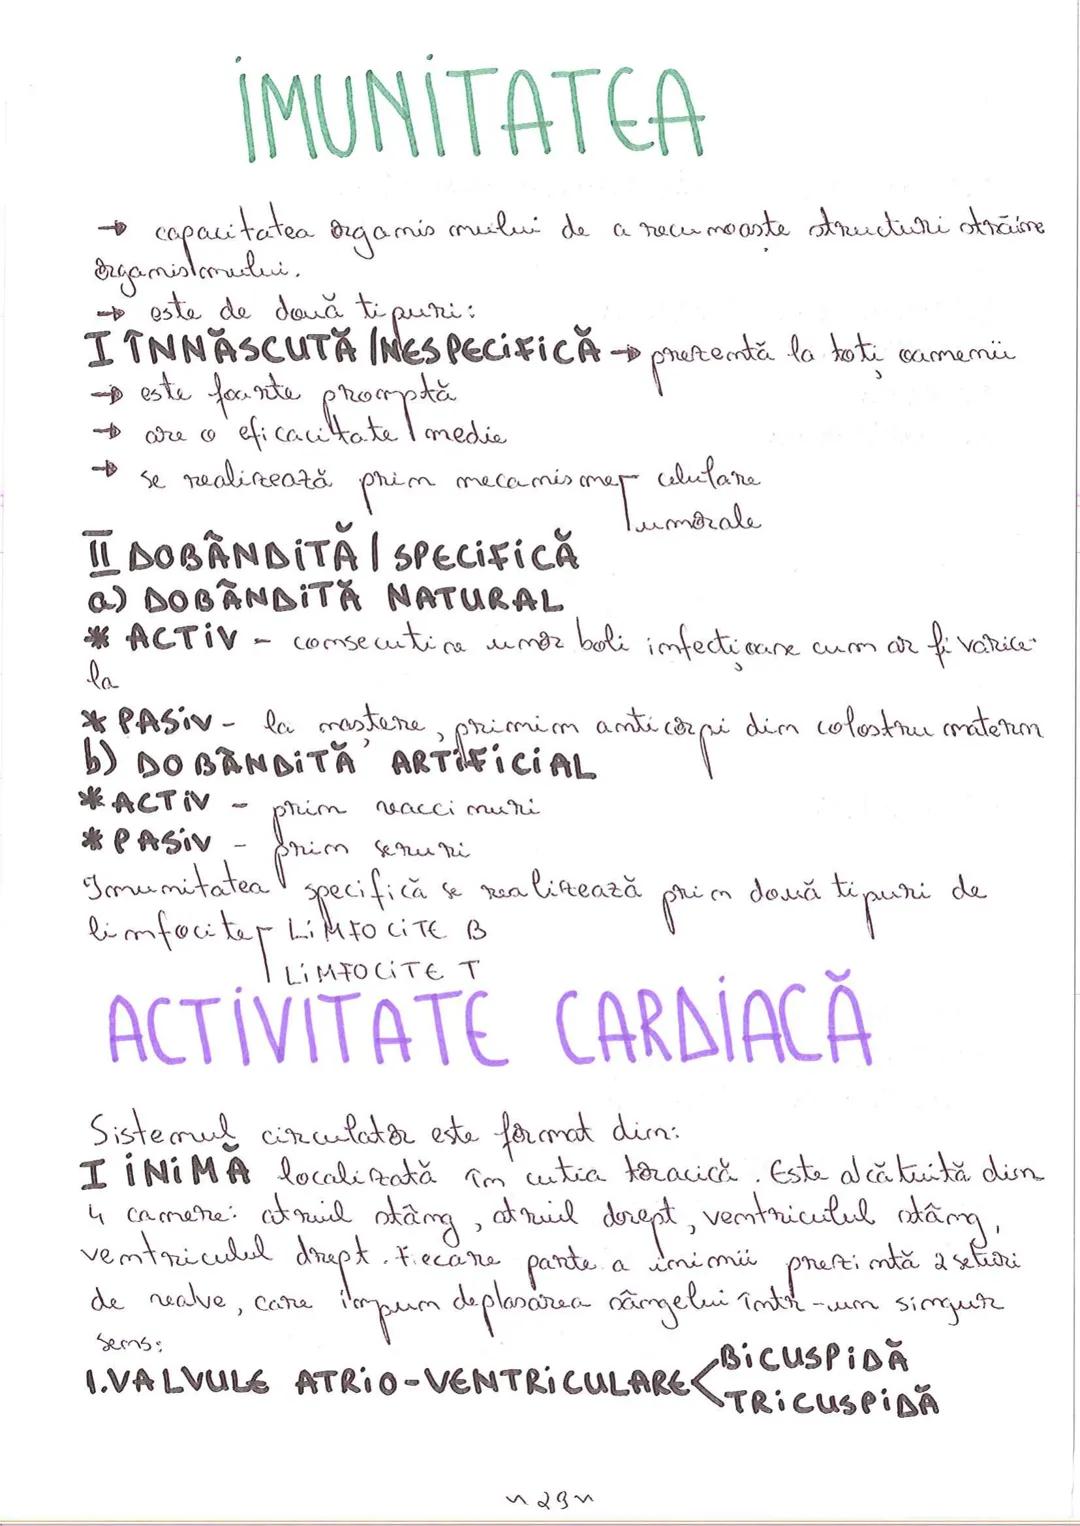 IMUNITATEA
→ capacitatea organismului de a recunoaște structuri străine
organismului.
→ este de două tipuri:
I ÎNNĂSCUTĂ/NESPECIFICĂ → prezentă la toți oamenii
→ este foarte promptă
→ are o eficacitate medie
→ se realizează prin mecanisme celulare
umorale
II DOBÂNDITĂ / SPECIFICĂ
a) DOBÂNDITĂ NATURAL
* ACTIV - consecutive unor boli infecțioase cum ar fi varice-
la
* PASIV - la naștere, primim anticorpi din colostru matern
b) DOBÂNDITĂ ARTIFICIAL
* ACTIV - prin vaccinuri
* PASIV - prin seruri
Imunitatea specifică se realizează prin două tipuri de
limfocite LIMFOCITE B
LIMFOCITE T
ACTIVITATE CARDIACĂ
Sistemul circulator este format din:
I INIMĂ localizată în cutia toracică. Este alcătuită din
4 camere: atriul stâng, atriul drept, ventriculul stâng,
ventriculul drept. Fiecare parte a inimii prezintă 2 seturi
de valve, care impun deplasarea sângelui într-un singur
sens:
1. VALVULE ATRIO-VENTRICULARE < BICUSPIDĂ
TRICUSPIDĂ
~29~